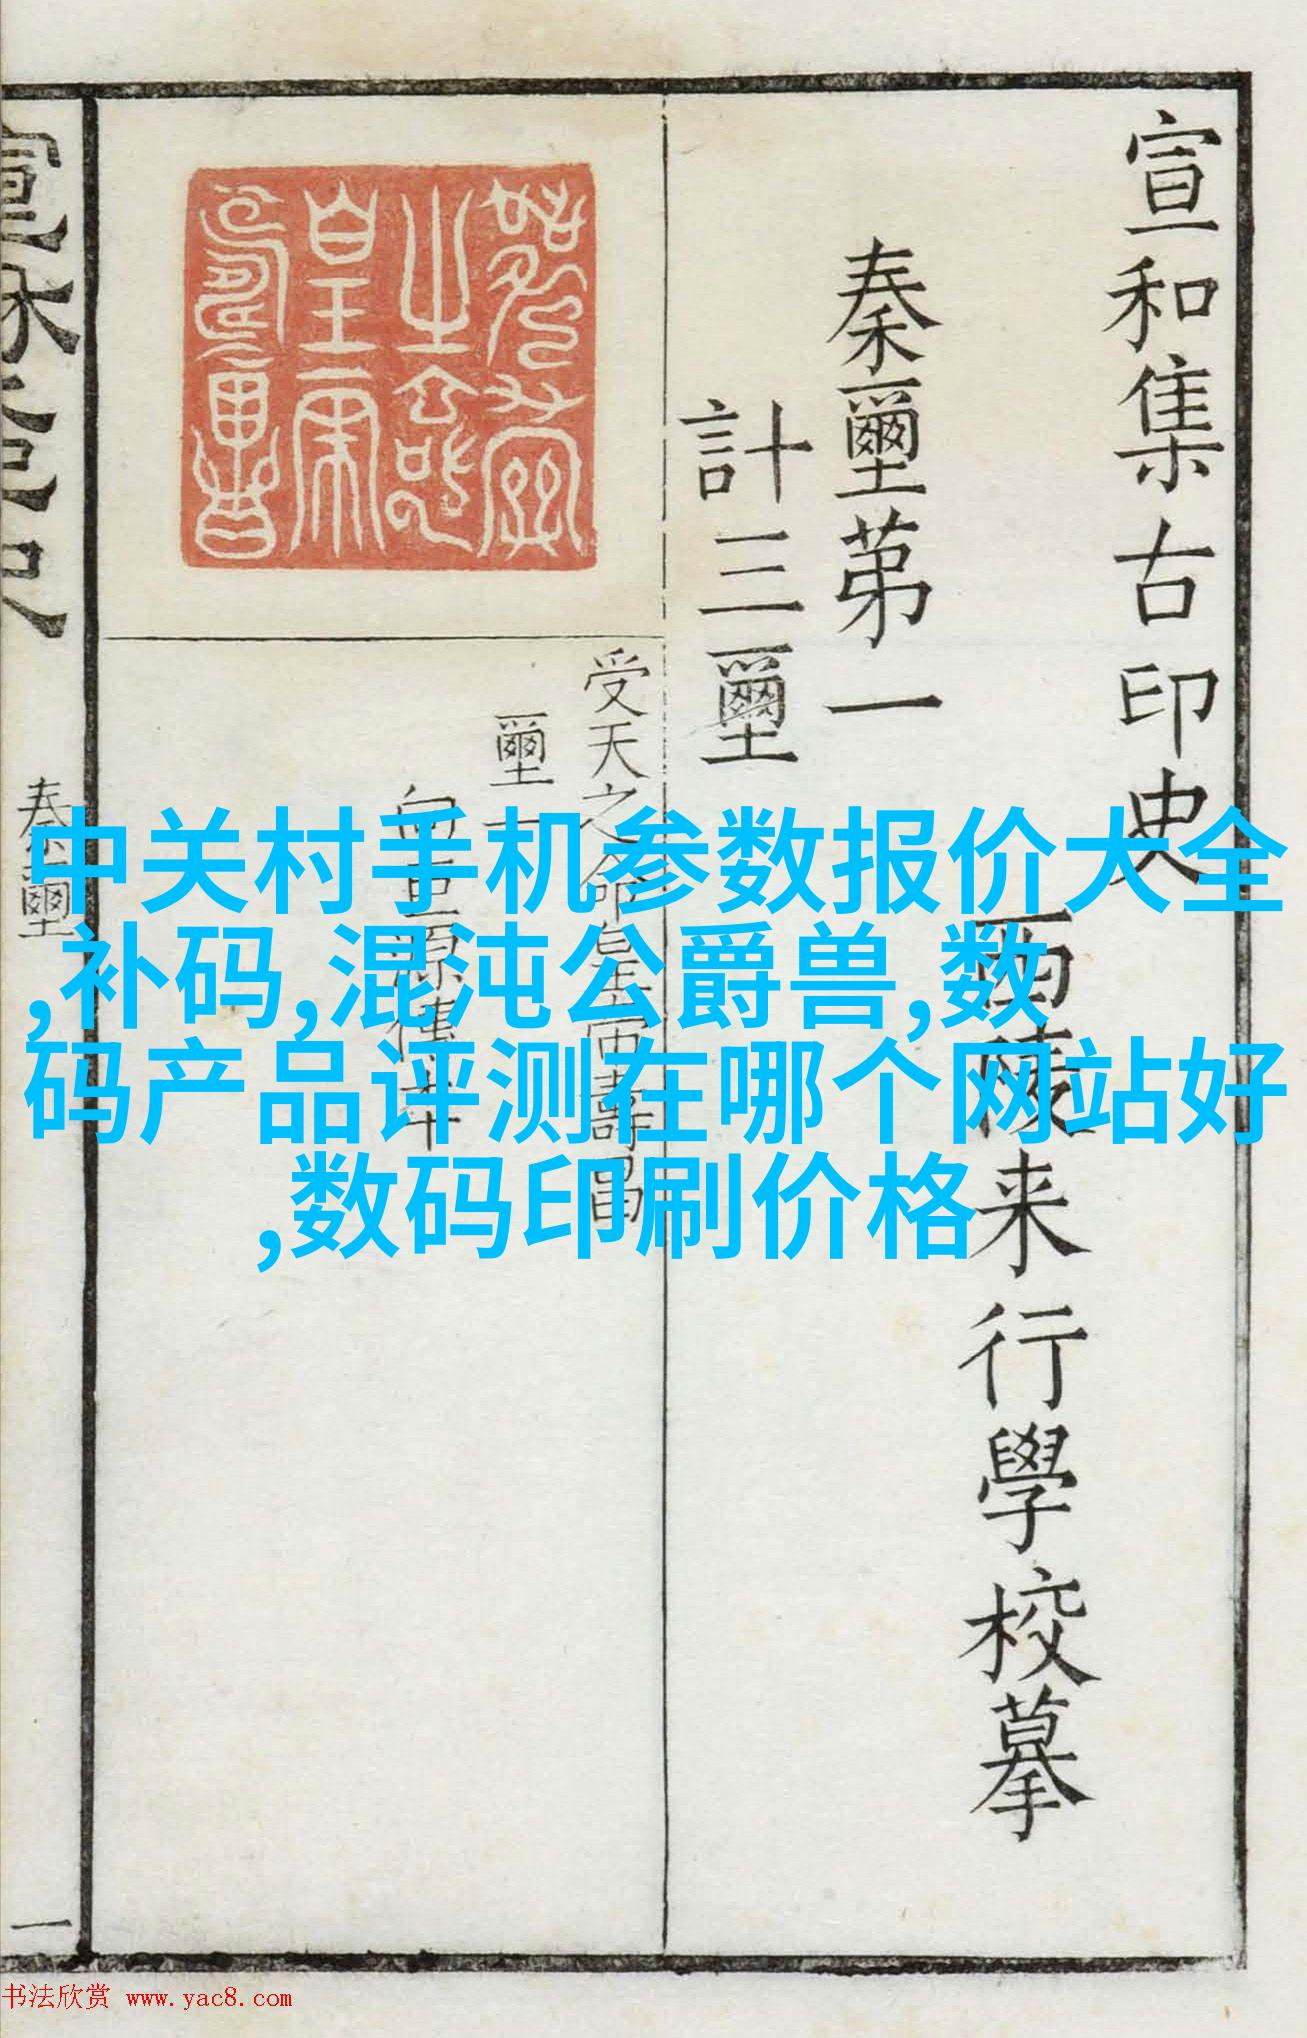 宣和集古印史
西陵来行學校摹
秦璽苐一
計三璽
受天之命皇帝壽昌
璽一
向巨源傳本
宣和集古印史
秦璽
一
中关村手机参数报价大全
,补码,混沌公爵兽,数
码产品评测在哪个网站好
,数码印刷价格
书法欣赏 www.yac8.com